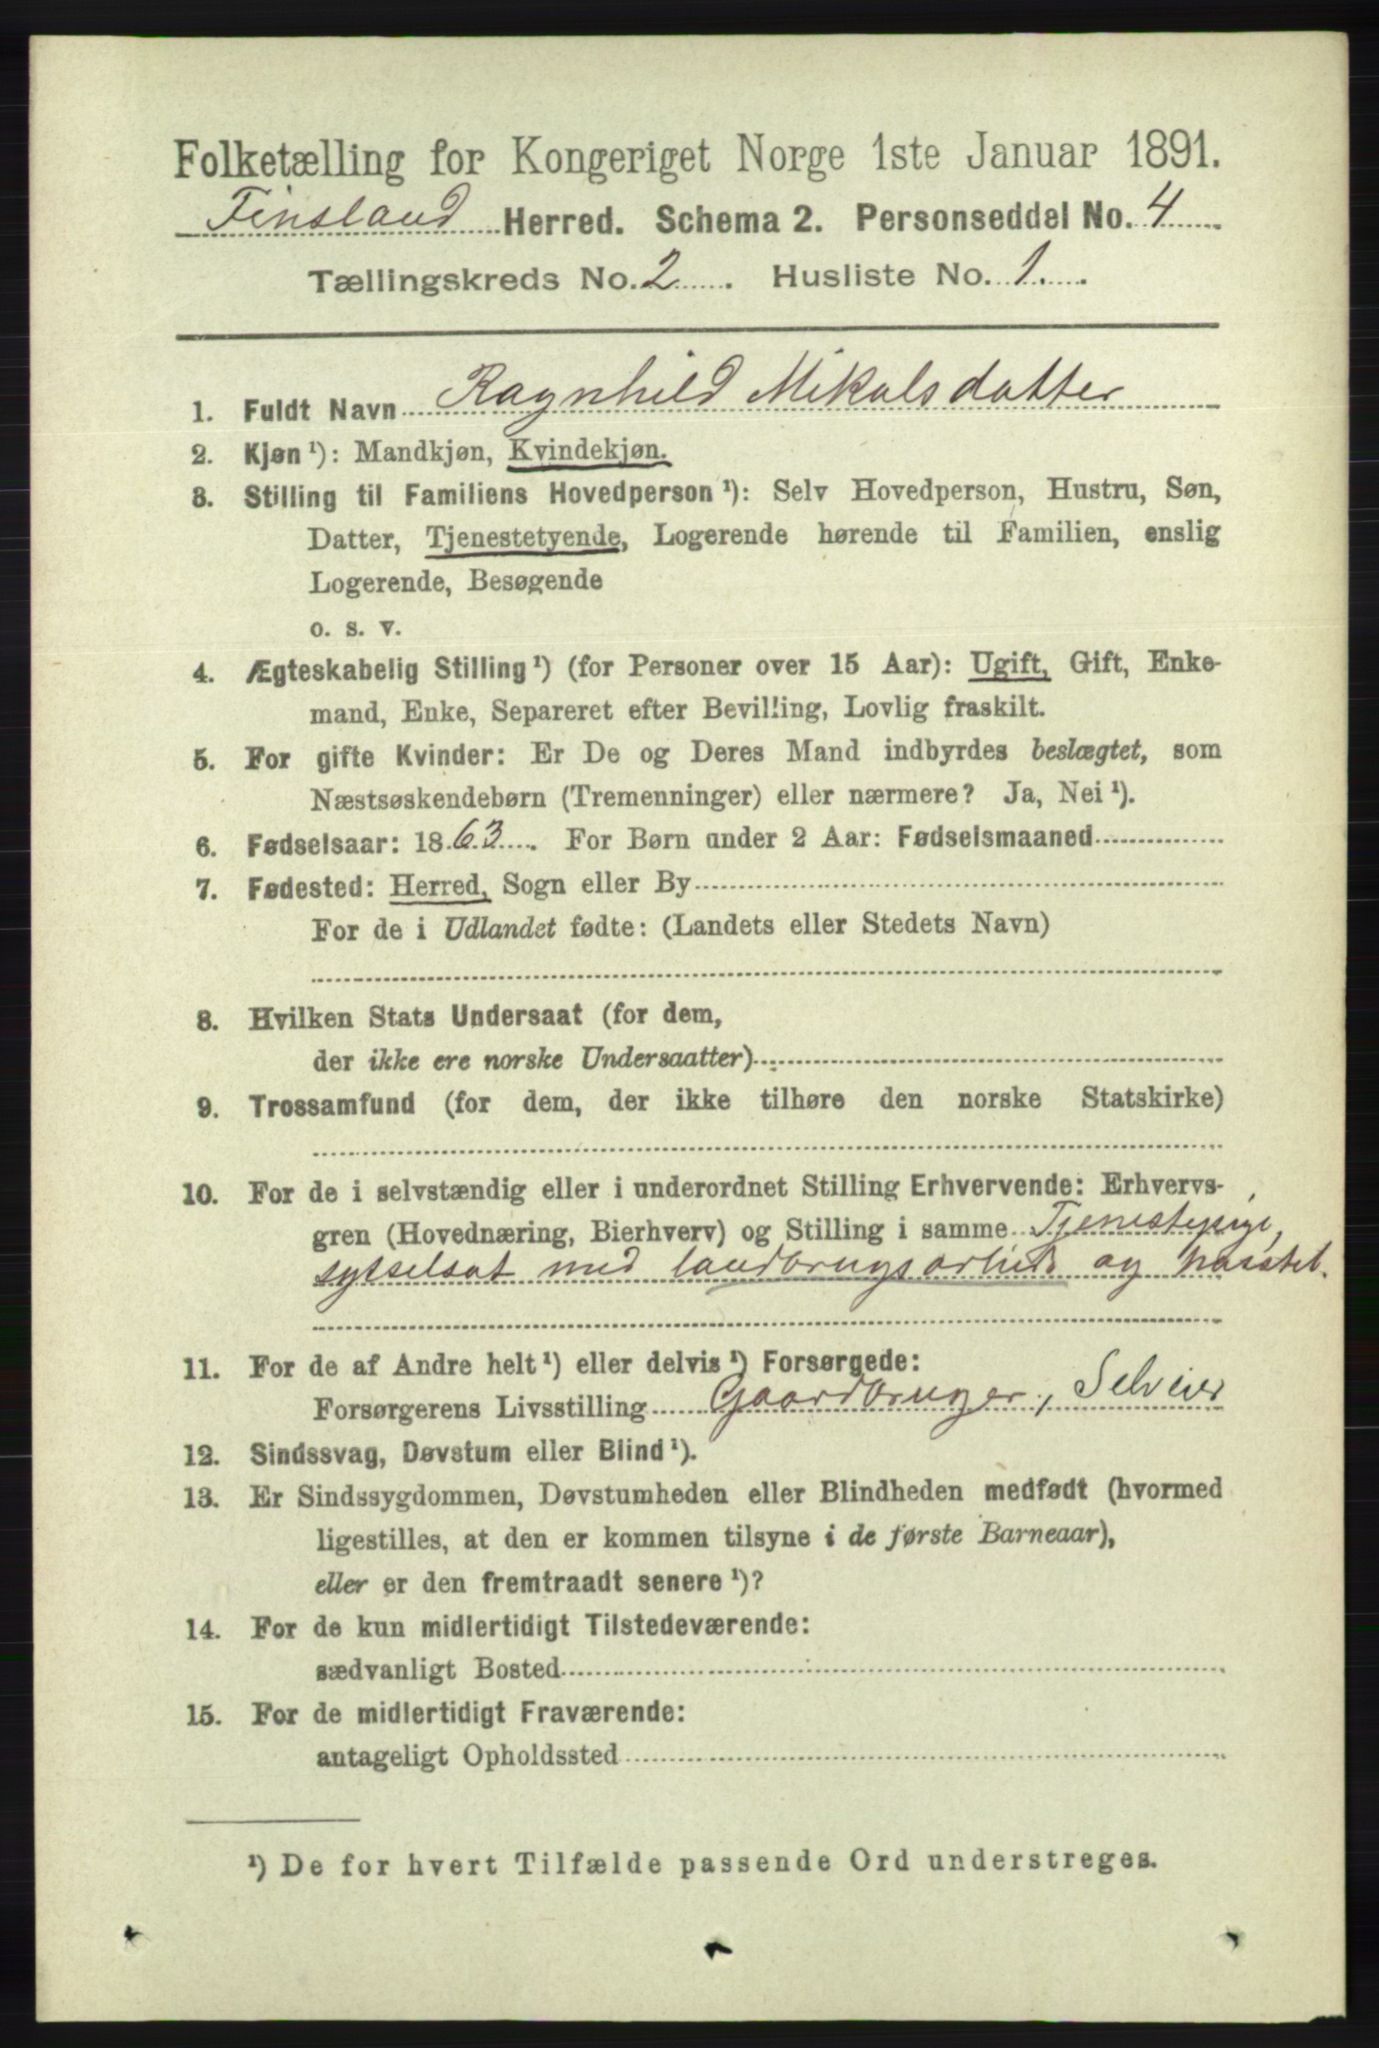 Folketælling for Kongeriget Norge 1ste Januar 1891.
Finsland Herred. Schema 2. Personseddel No. 4
Tællingskreds No. 2 Husliste No. 1.
1. Fuldt Navn Ragnhild Mikalsdatter
2. Kjøn¹): Mandkjøn, Kvindekjøn.
3. Stilling til Familiens Hovedperson¹): Selv Hovedperson, Hustru, Søn,
Datter, Tjenestetyende, Logerende hørende til Familien, enslig
Logerende, Besøgende
o. s. v.
4. Ægteskabelig Stilling¹) (for Personer over 15 Aar): Ugift, Gift, Enke-
mand, Enke, Separeret efter Bevilling, Lovlig fraskilt.
5. For gifte Kvinder: Er De og Deres Mand indbyrdes beslægtet, som
Næstsøskendebørn (Tremenninger) eller nærmere? Ja, Nei¹).
6. Fødselsaar: 1863. For Børn under 2 Aar: Fødselsmaaned
7. Fødested: Herred, Sogn eller By
For de i Udlandet fødte: (Landets eller Stedets Navn)
8. Hvilken Stats Undersaat (for dem,
der ikke ere norske Undersaatter)
9. Trossamfund (for dem, der ikke tilhøre den norske Statskirke)
10. For de i selvstændig eller i underordnet Stilling Erhvervende: Erhvervs-
gren (Hovednæring, Bierhverv) og Stilling i samme Tjenestepige,
sysselsat med landbrugsarbeide og husstel.
11. For de af Andre helt¹) eller delvis¹) Forsørgede:
Forsørgerens Livsstilling Gaardbruger, Selveier
12. Sindssvag, Døvstum eller Blind¹).
13. Er Sindssygdommen, Døvstumheden eller Blindheden medfødt (hvormed
ligestilles, at den er kommen tilsyne i de første Barneaar),
eller er den fremtraadt senere¹)?
14. For de kun midlertidigt Tilstedeværende:
sædvanligt Bosted
15. For de midlertidigt Fraværende:
antageligt Opholdssted
¹) De for hvert Tilfælde passende Ord understreges.